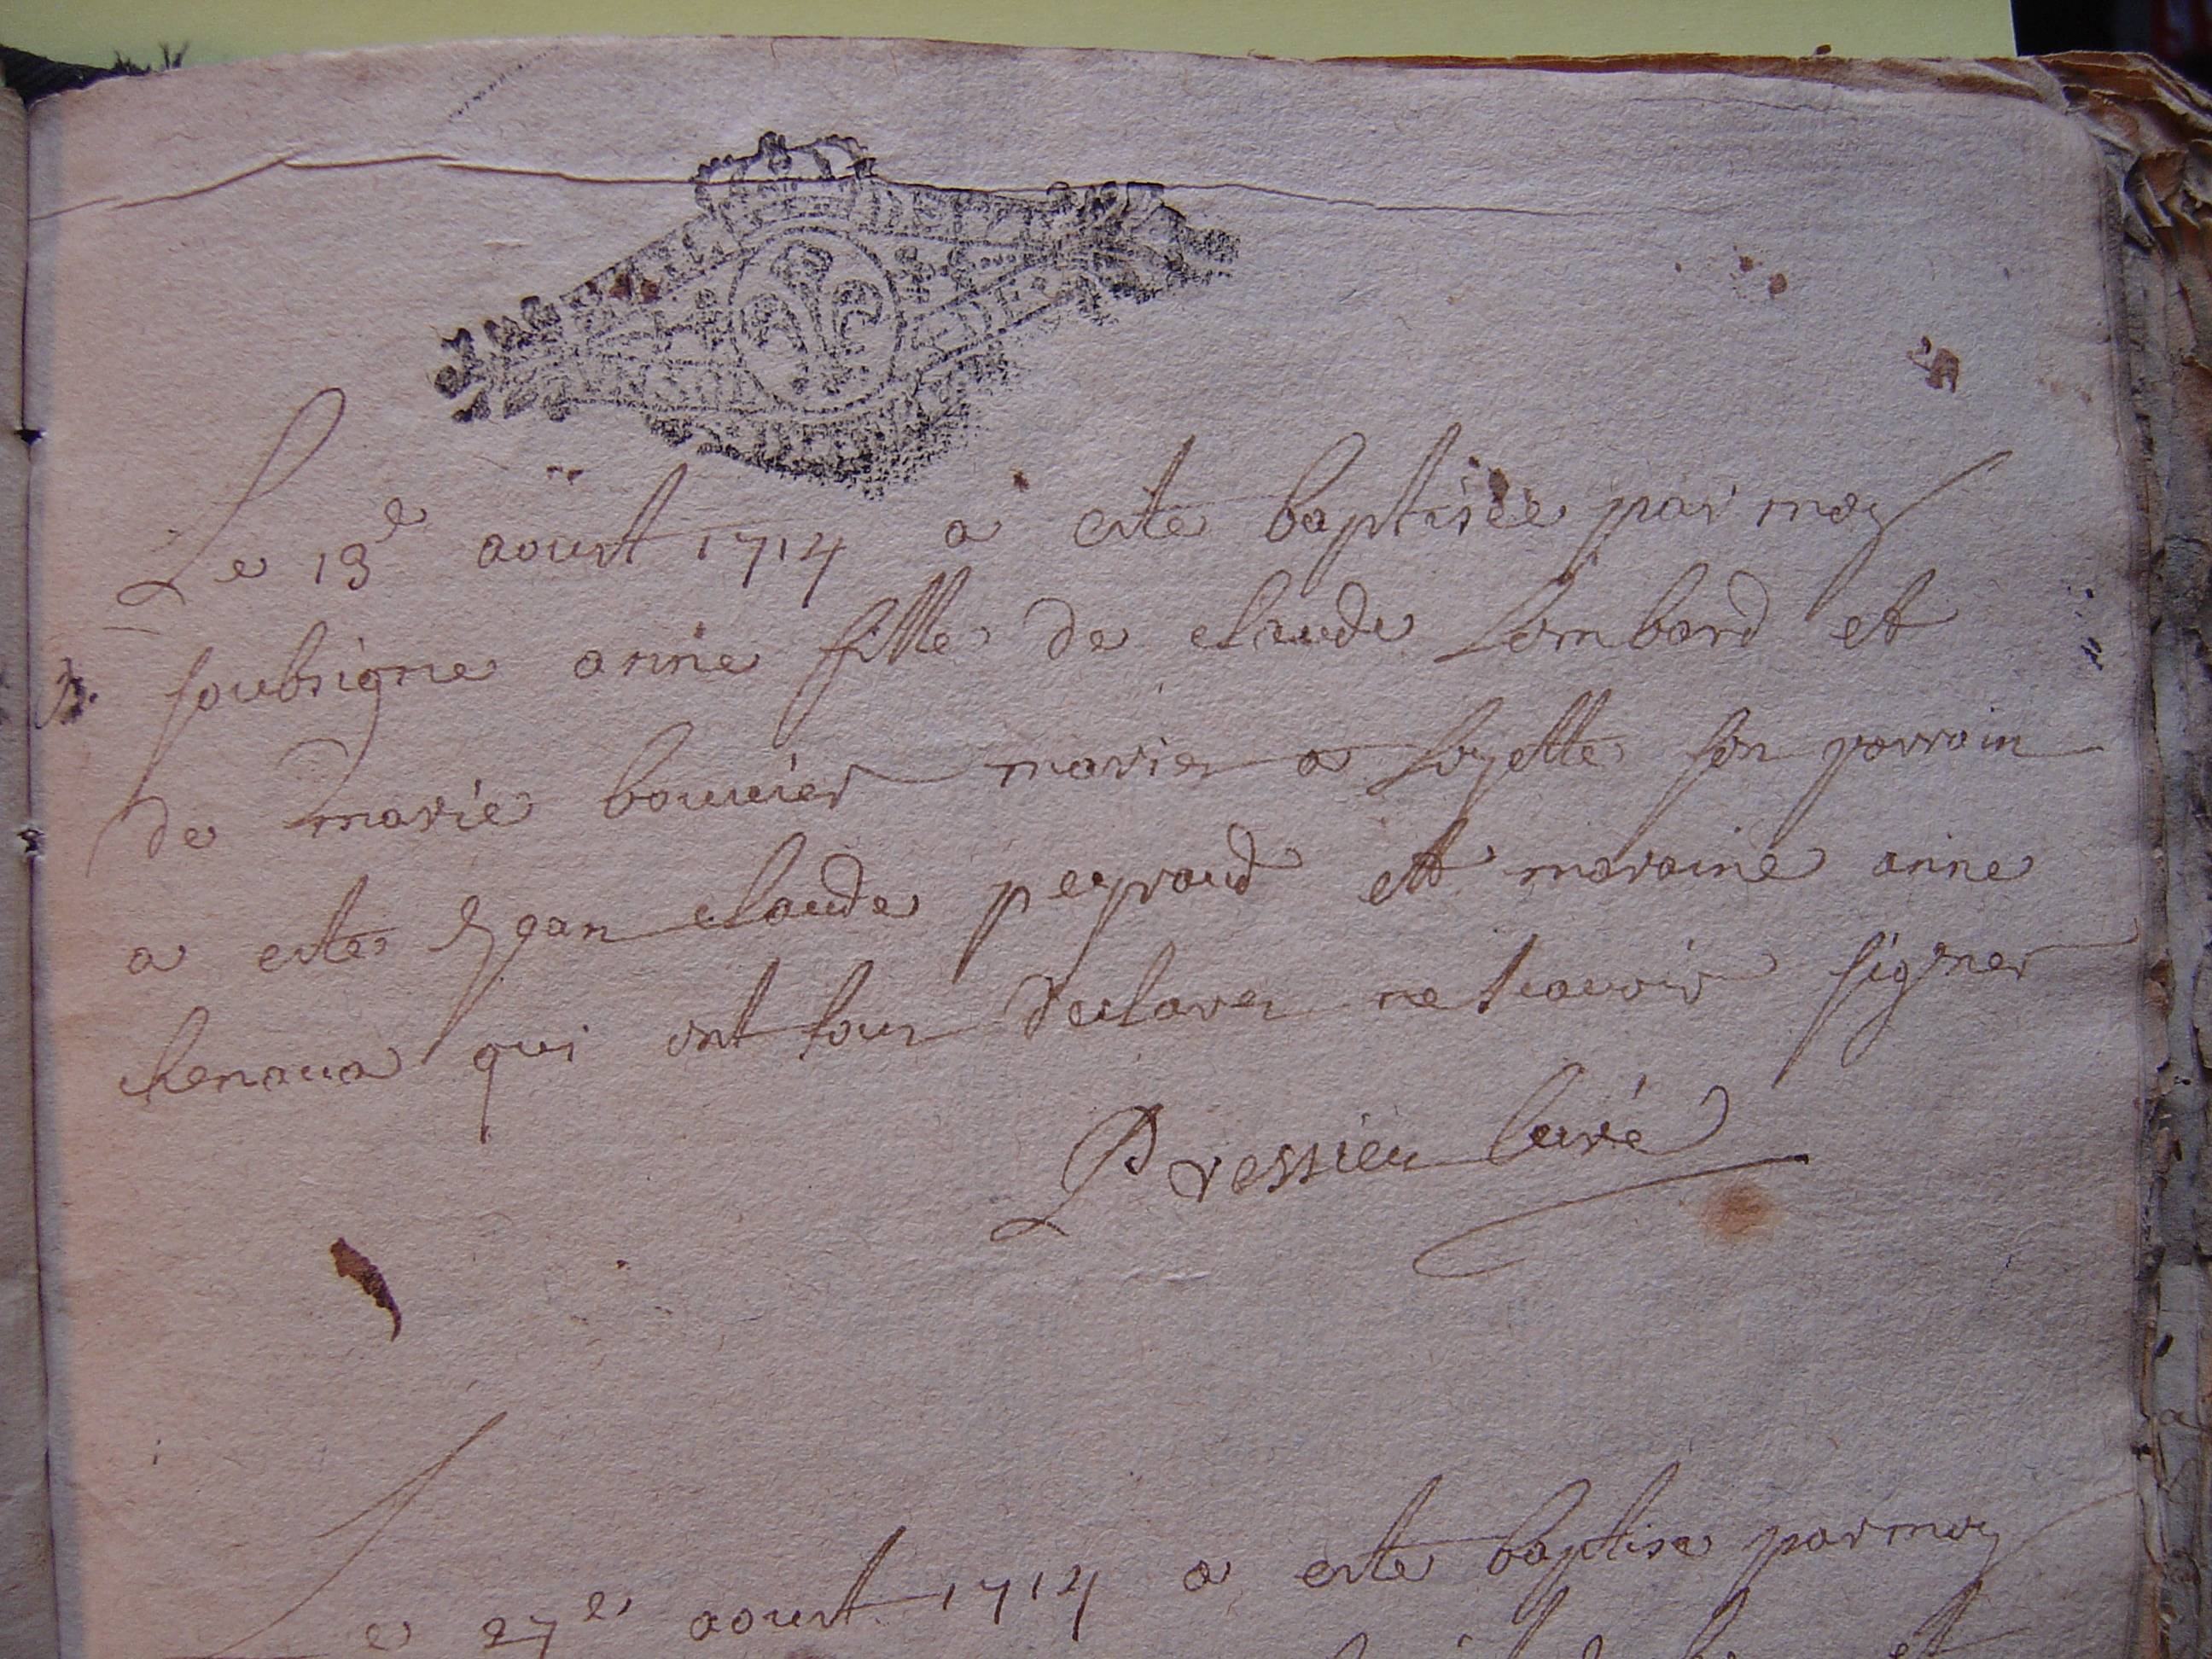 Le 13e aoust 1714 a esté baptisée par moy
soubsigne anne fille de claude Lombard et
de marie bouuier mariés a Loyette son parrain
a esté Jean claude peyraud et maraine anne
chenaua qui ont tous declarés ne scavoir signer
Dressieu Curé
Le 27e aoust 1714 a esté baptisé par moy
et